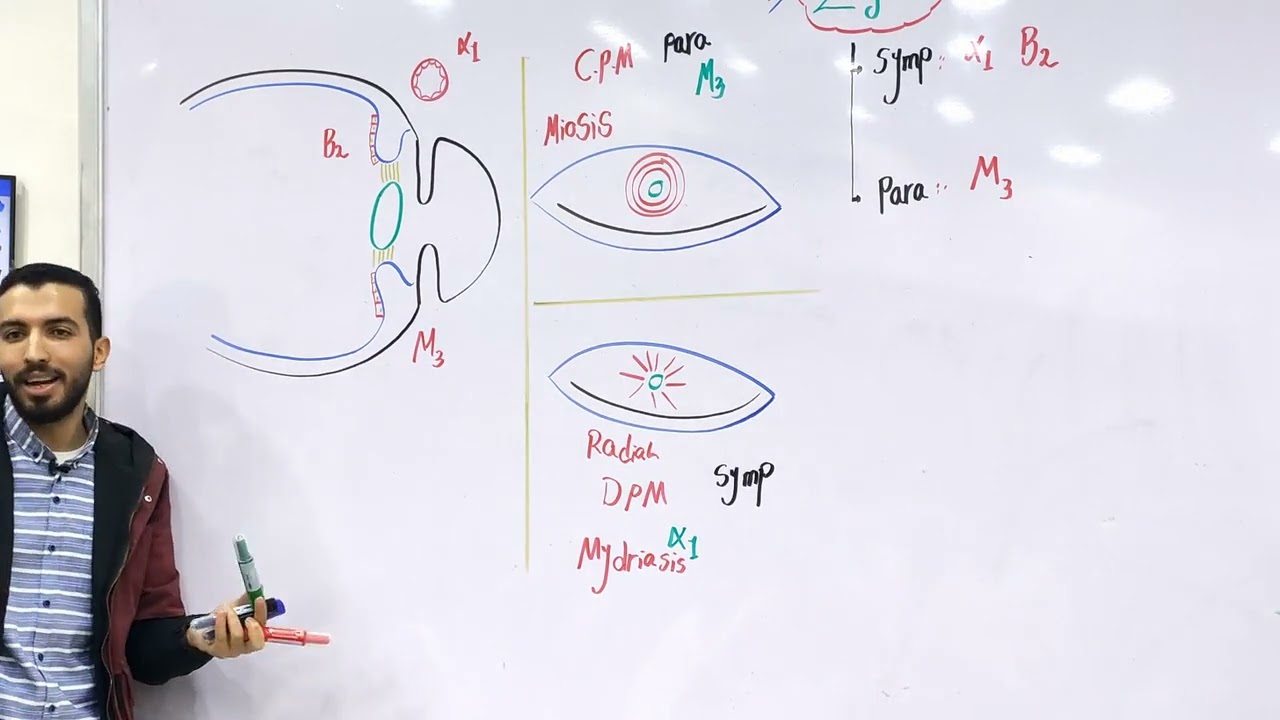 α1
B2
M3
C.P.M para
M3
Miosis
Radial
DPM
Symp
α1
Mydriasis
Symp: α1 B2
Para: M3